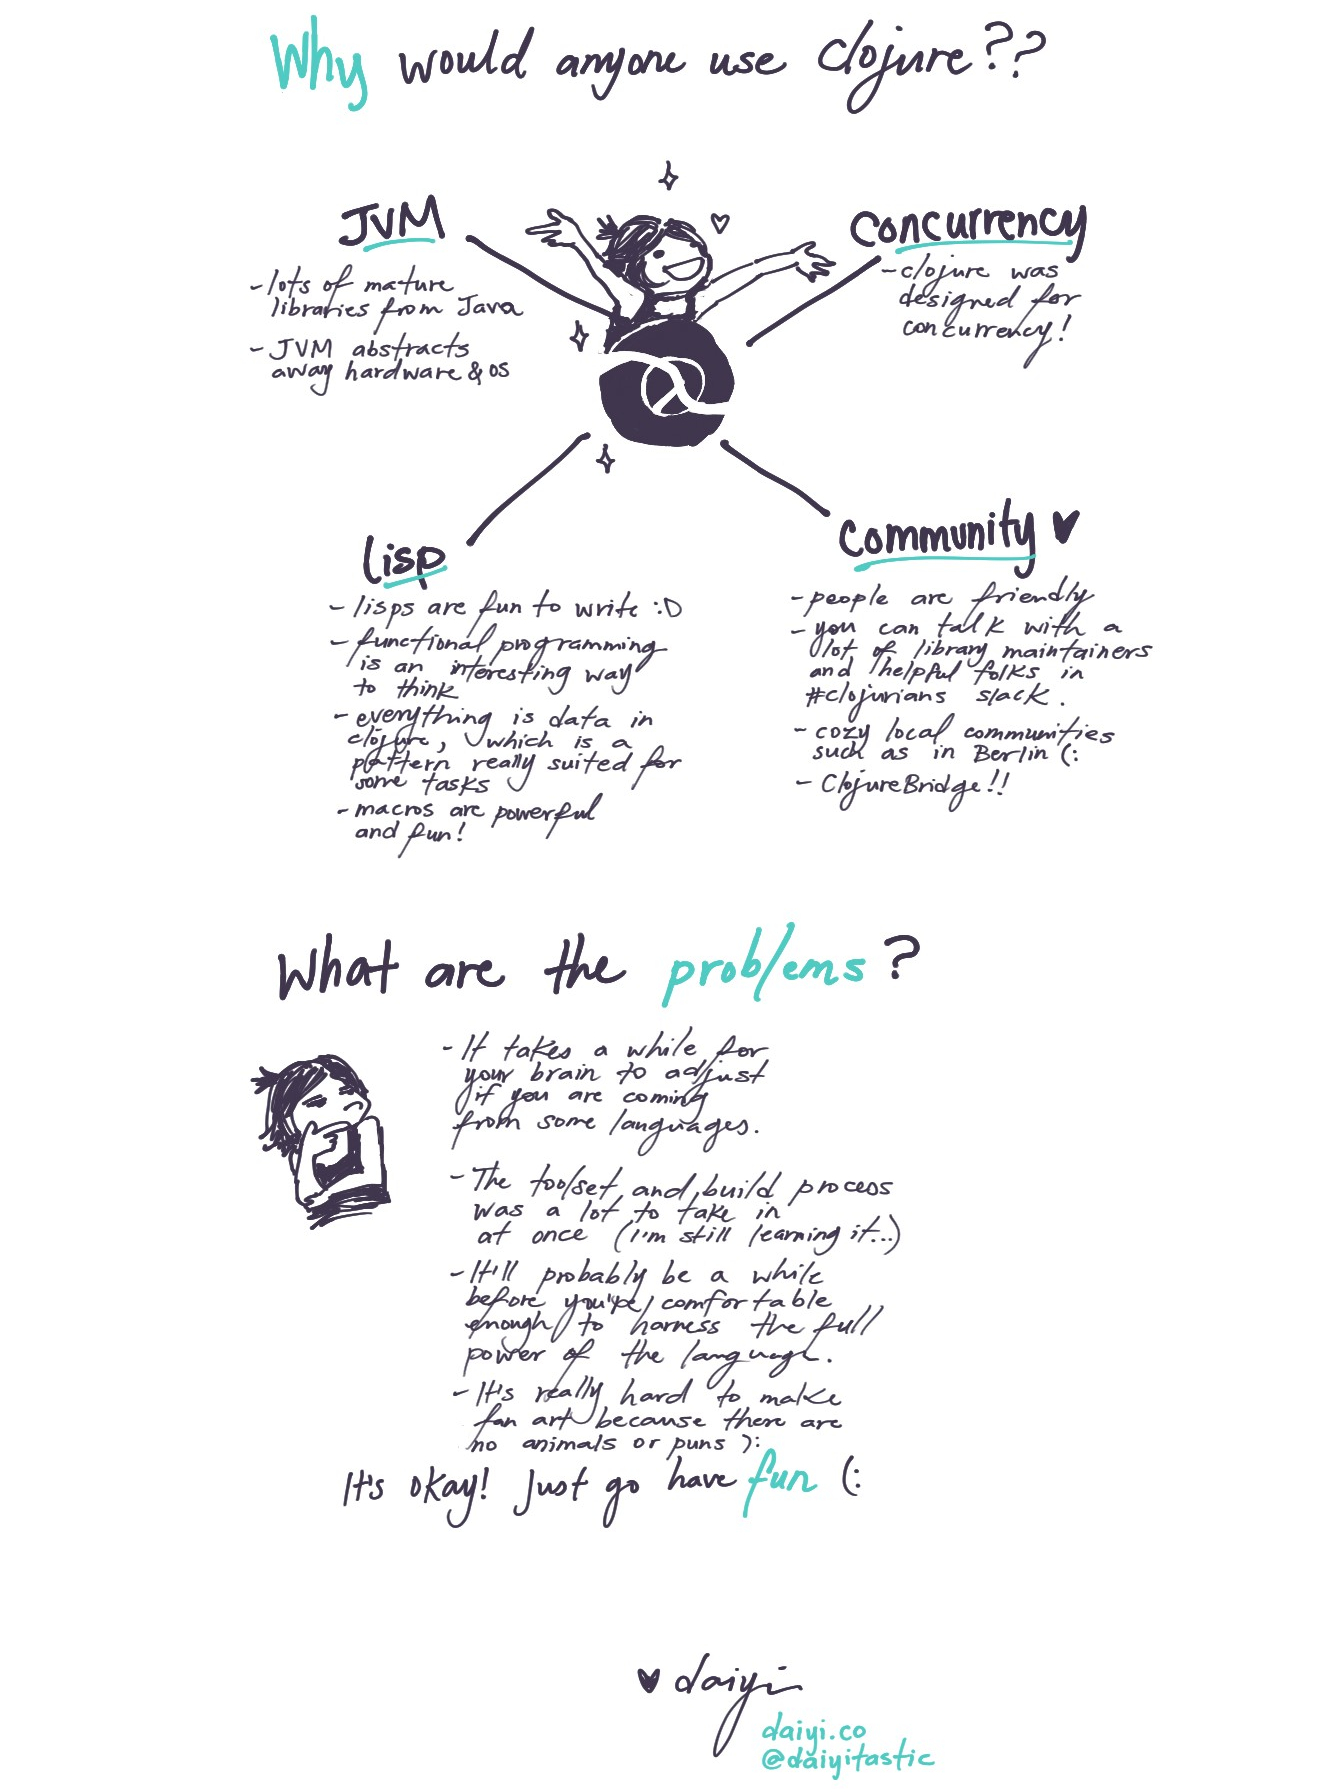 Why would anyone use Clojure??
JVM
- lots of mature
libraries from Java
- JVM abstracts
away hardware & OS
Concurrency
- clojure was
designed for
concurrency!
Lisp
- lisps are fun to write :D
- functional programming
is an interesting way
to think
- everything is data in
clojure, which is a
pattern really suited for
some tasks
- macros are powerful
and fun!
Community ♥
- people are friendly
- you can talk with a
lot of library maintainers
and helpful folks in
#clojurians slack.
- cozy local communities
such as in Berlin (:
- ClojureBridge!!
What are the problems?
- It takes a while for
your brain to adjust
if you are coming
from some languages.
- The toolset and build process
was a lot to take in
at once (I'm still learning it...)
- It'll probably be a while
before you're comfortable
enough to harness the full
power of the language.
- It's really hard to make
fan art because there are
no animals or puns ):
It's okay! Just go have fun (:
♥ daiyi
daiyi.co
@daiyitastic